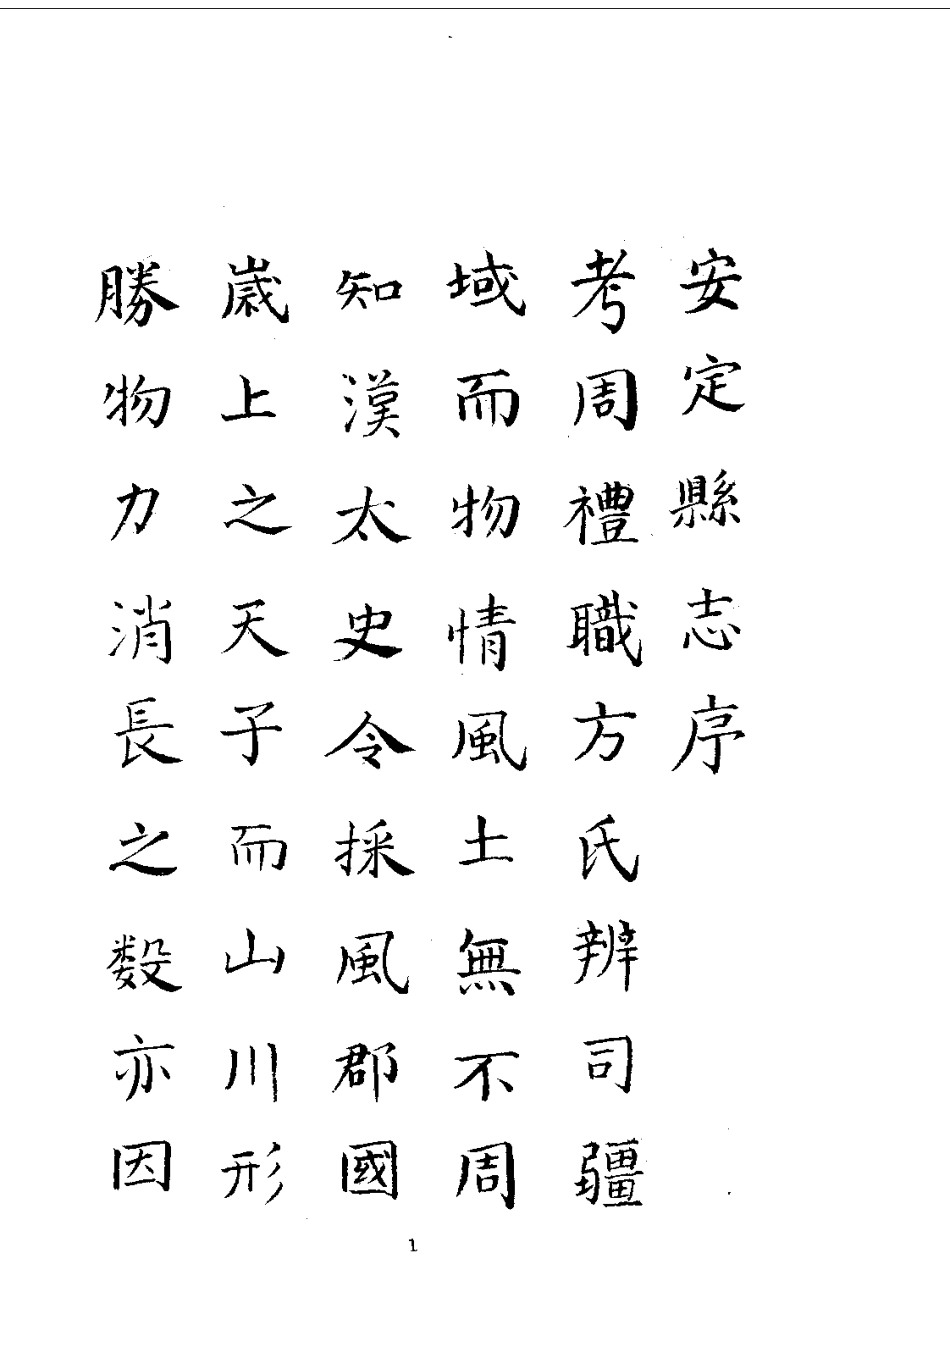 安定縣志序
考周禮職方氏辨司疆
域而物情風土無不周
知漢太史令採風郡國
歲上之天子而山川形
勝物力消長之數亦因
1